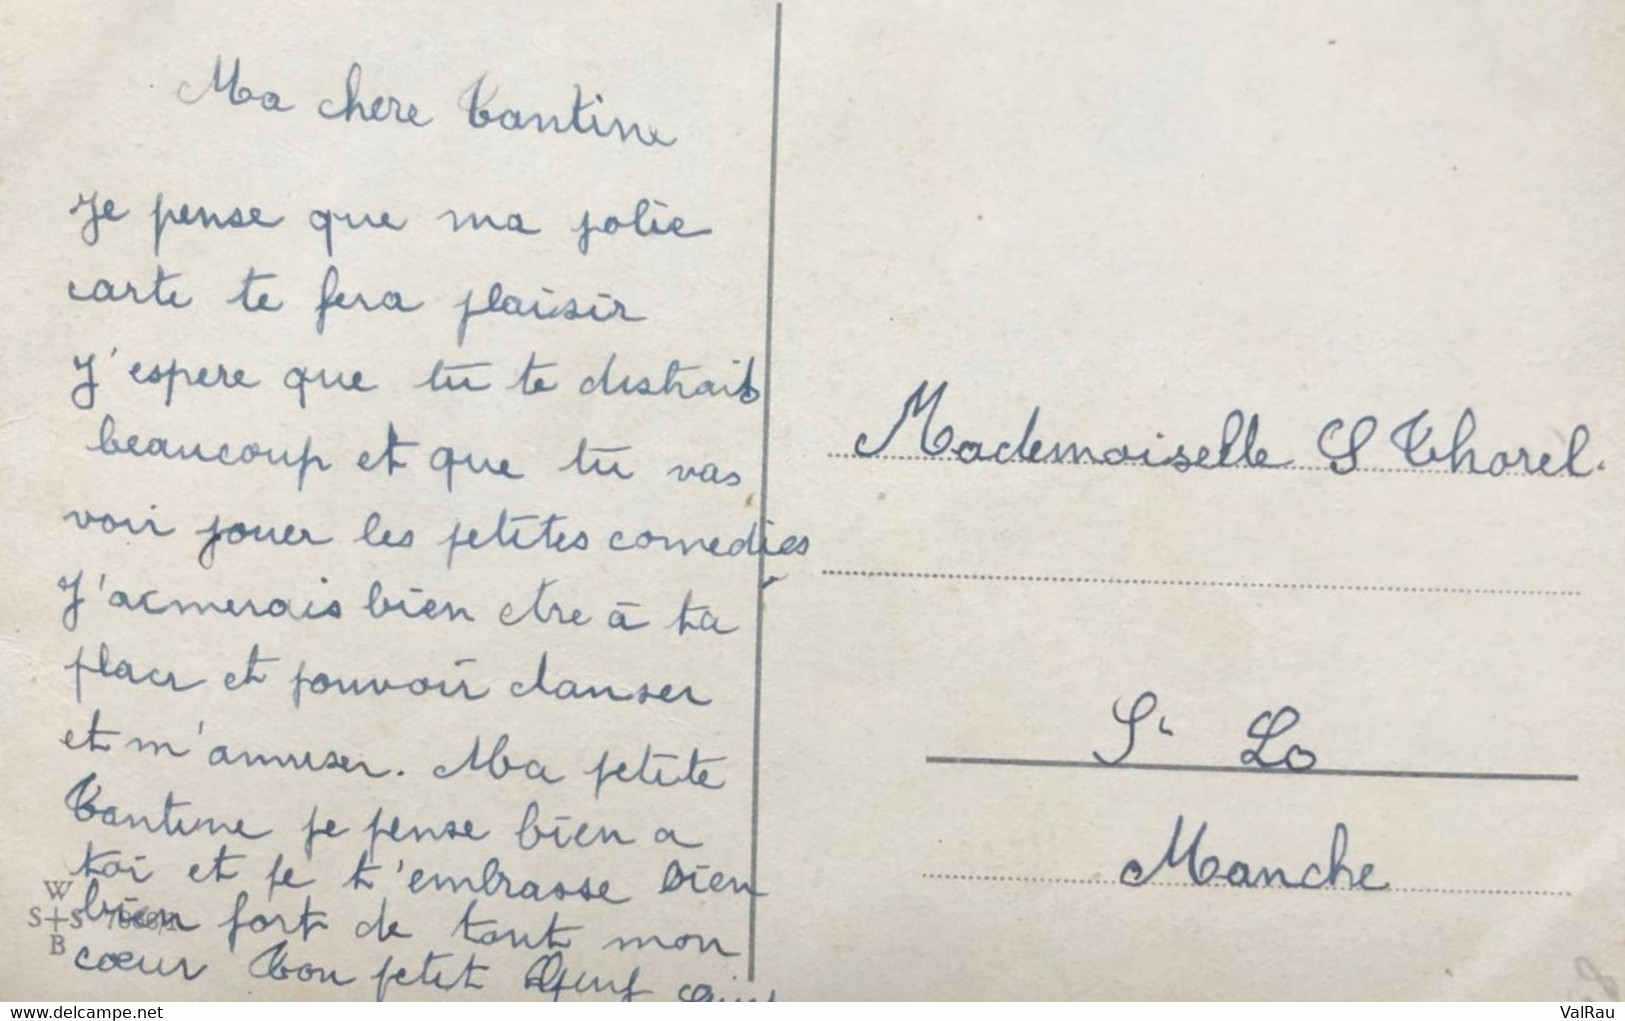 Ma chere Tantine
Je pense que ma jolie
carte te fera plaisir
J'espere que tu te distrait
beaucoup et que tu vas
voir jouer les petites comedies
J'aimerais bien etre à ta
place et pouvoir danser
et m'amuser. Ma petite
Tantine je pense bien a
toi et je t'embrasse bien
bien fort de tout mon
coeur Ton petit
Mademoiselle S Thorel.
St Lo
Manche
W
S+S
B
delcampe.net
ValRau